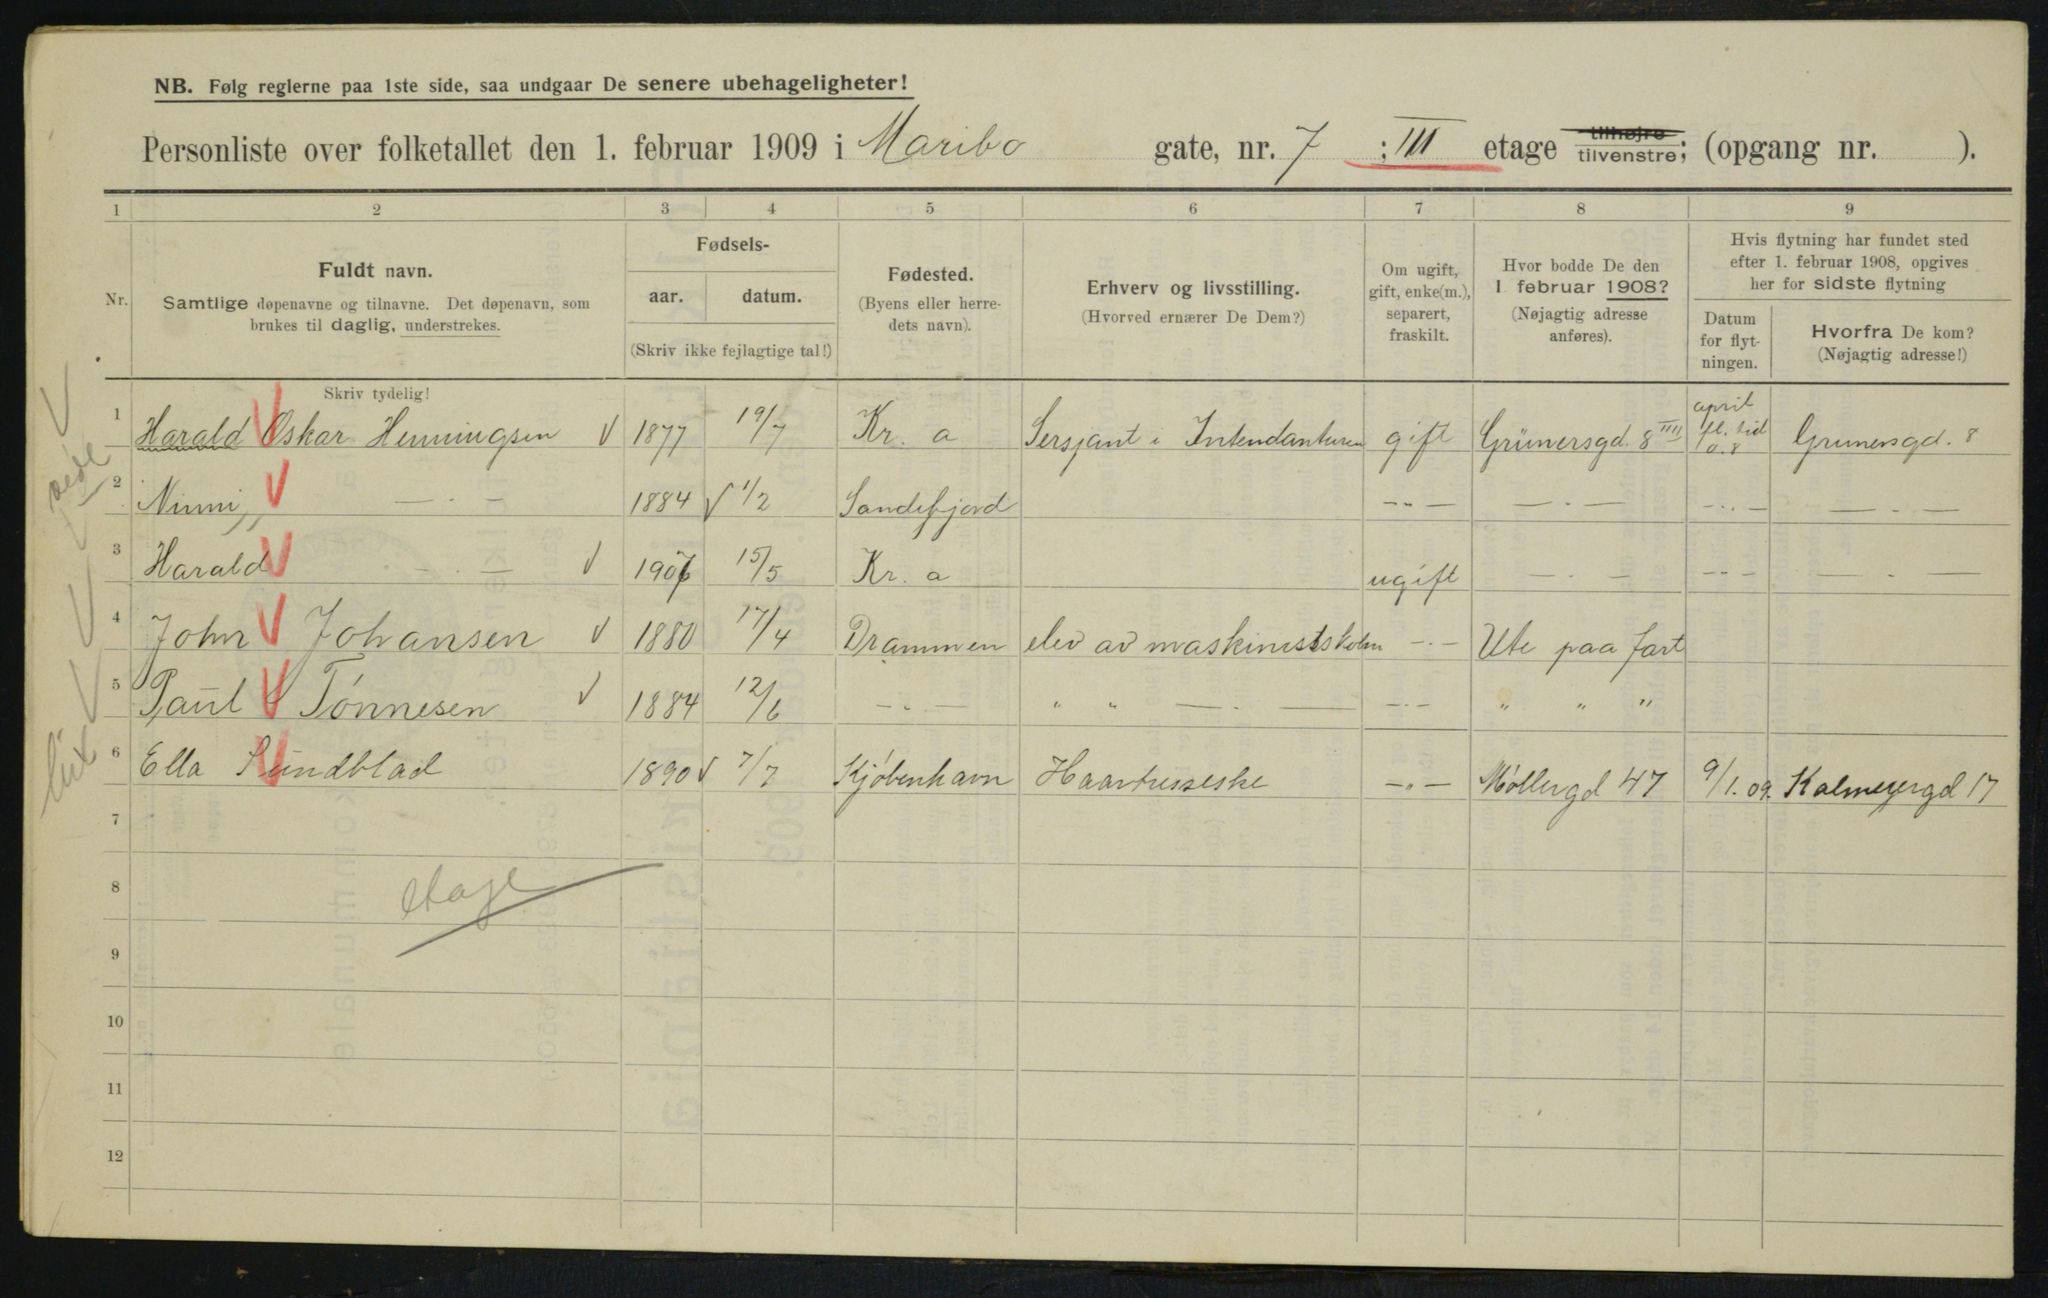 NB. Følg reglerne paa 1ste side, saa undgaar De senere ubehageligheter!
Personliste over folketallet den 1. februar 1909 i Maribo gate, nr. 7 ; III etage tilhøjre tilvenstre; (opgang nr. ).
1 2 3 4 5 6 7 8 9
Nr.
Fuldt navn.
Samtlige døpenavne og tilnavne. Det døpenavn, som
brukes til daglig, understrekes.
Skriv tydelig!
Fødsels-
aar. datum.
(Skriv ikke fejlagtige tal!)
Fødested.
(Byens eller herre-
dets navn).
Erhverv og livsstilling.
(Hvorved ernærer De Dem?)
Om ugift,
gift, enke(m.),
separert,
fraskilt.
Hvor bodde De den
1 februar 1908?
(Nøjagtig adresse
anføres).
Hvis flytning har fundet sted
efter 1. februar 1908, opgives
her for sidste flytning
Datum
for flyt-
ningen.
Hvorfra De kom?
(Nøjagtig adresse!)
1 Harald Oskar Henningsen 1877 19/7 Kr. a Sersjant i Intendanturen gift Grünersgd. 8 IIII april fl. tid 08 Grunersgd. 8
2 Ninni — " — 1884 1/2 Sandefjord — " — — " — — " — — " —
3 Harald — " — 15/5 Kr. a ugift — " — — " — — " —
4 John Johansen 1880 17/4 Drammen elev av maskinistskolen — " — Ute paa fart
5 Paul Tönnesen 1884 12/6 — " — " " — " — — " — " " "
6 Ella Sundblad 1890 7/7 Kjøbenhavn Haarfrisseske — " — Møllergd 47 9/1. 09. Kalmeyergd 17
7
8
9
10
11
12